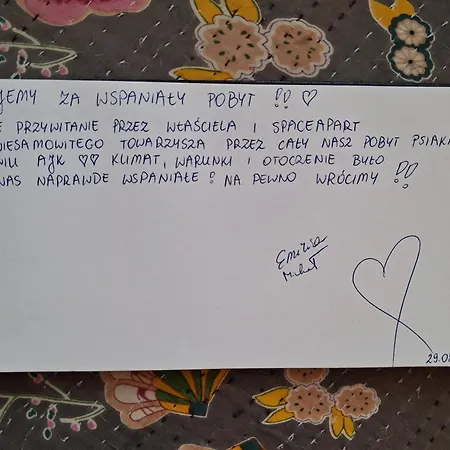 JEMY ZA WSPANIAŁY POBYT !! ♡
E PRZYWITANIE PRZEZ WŁAŚCIELA I SPACEAPART
NIESAMOWITEGO TOWARZYSZA PRZEZ CAŁY NASZ POBYT PSIAKA
NIU AJK ♡♡ KLIMAT, WARUNKI I OTOCZENIE BYŁO
NAS NAPRAWDE WSPANIAŁE! NA PEWNO WRÓCIMY !!
Michał
29.08